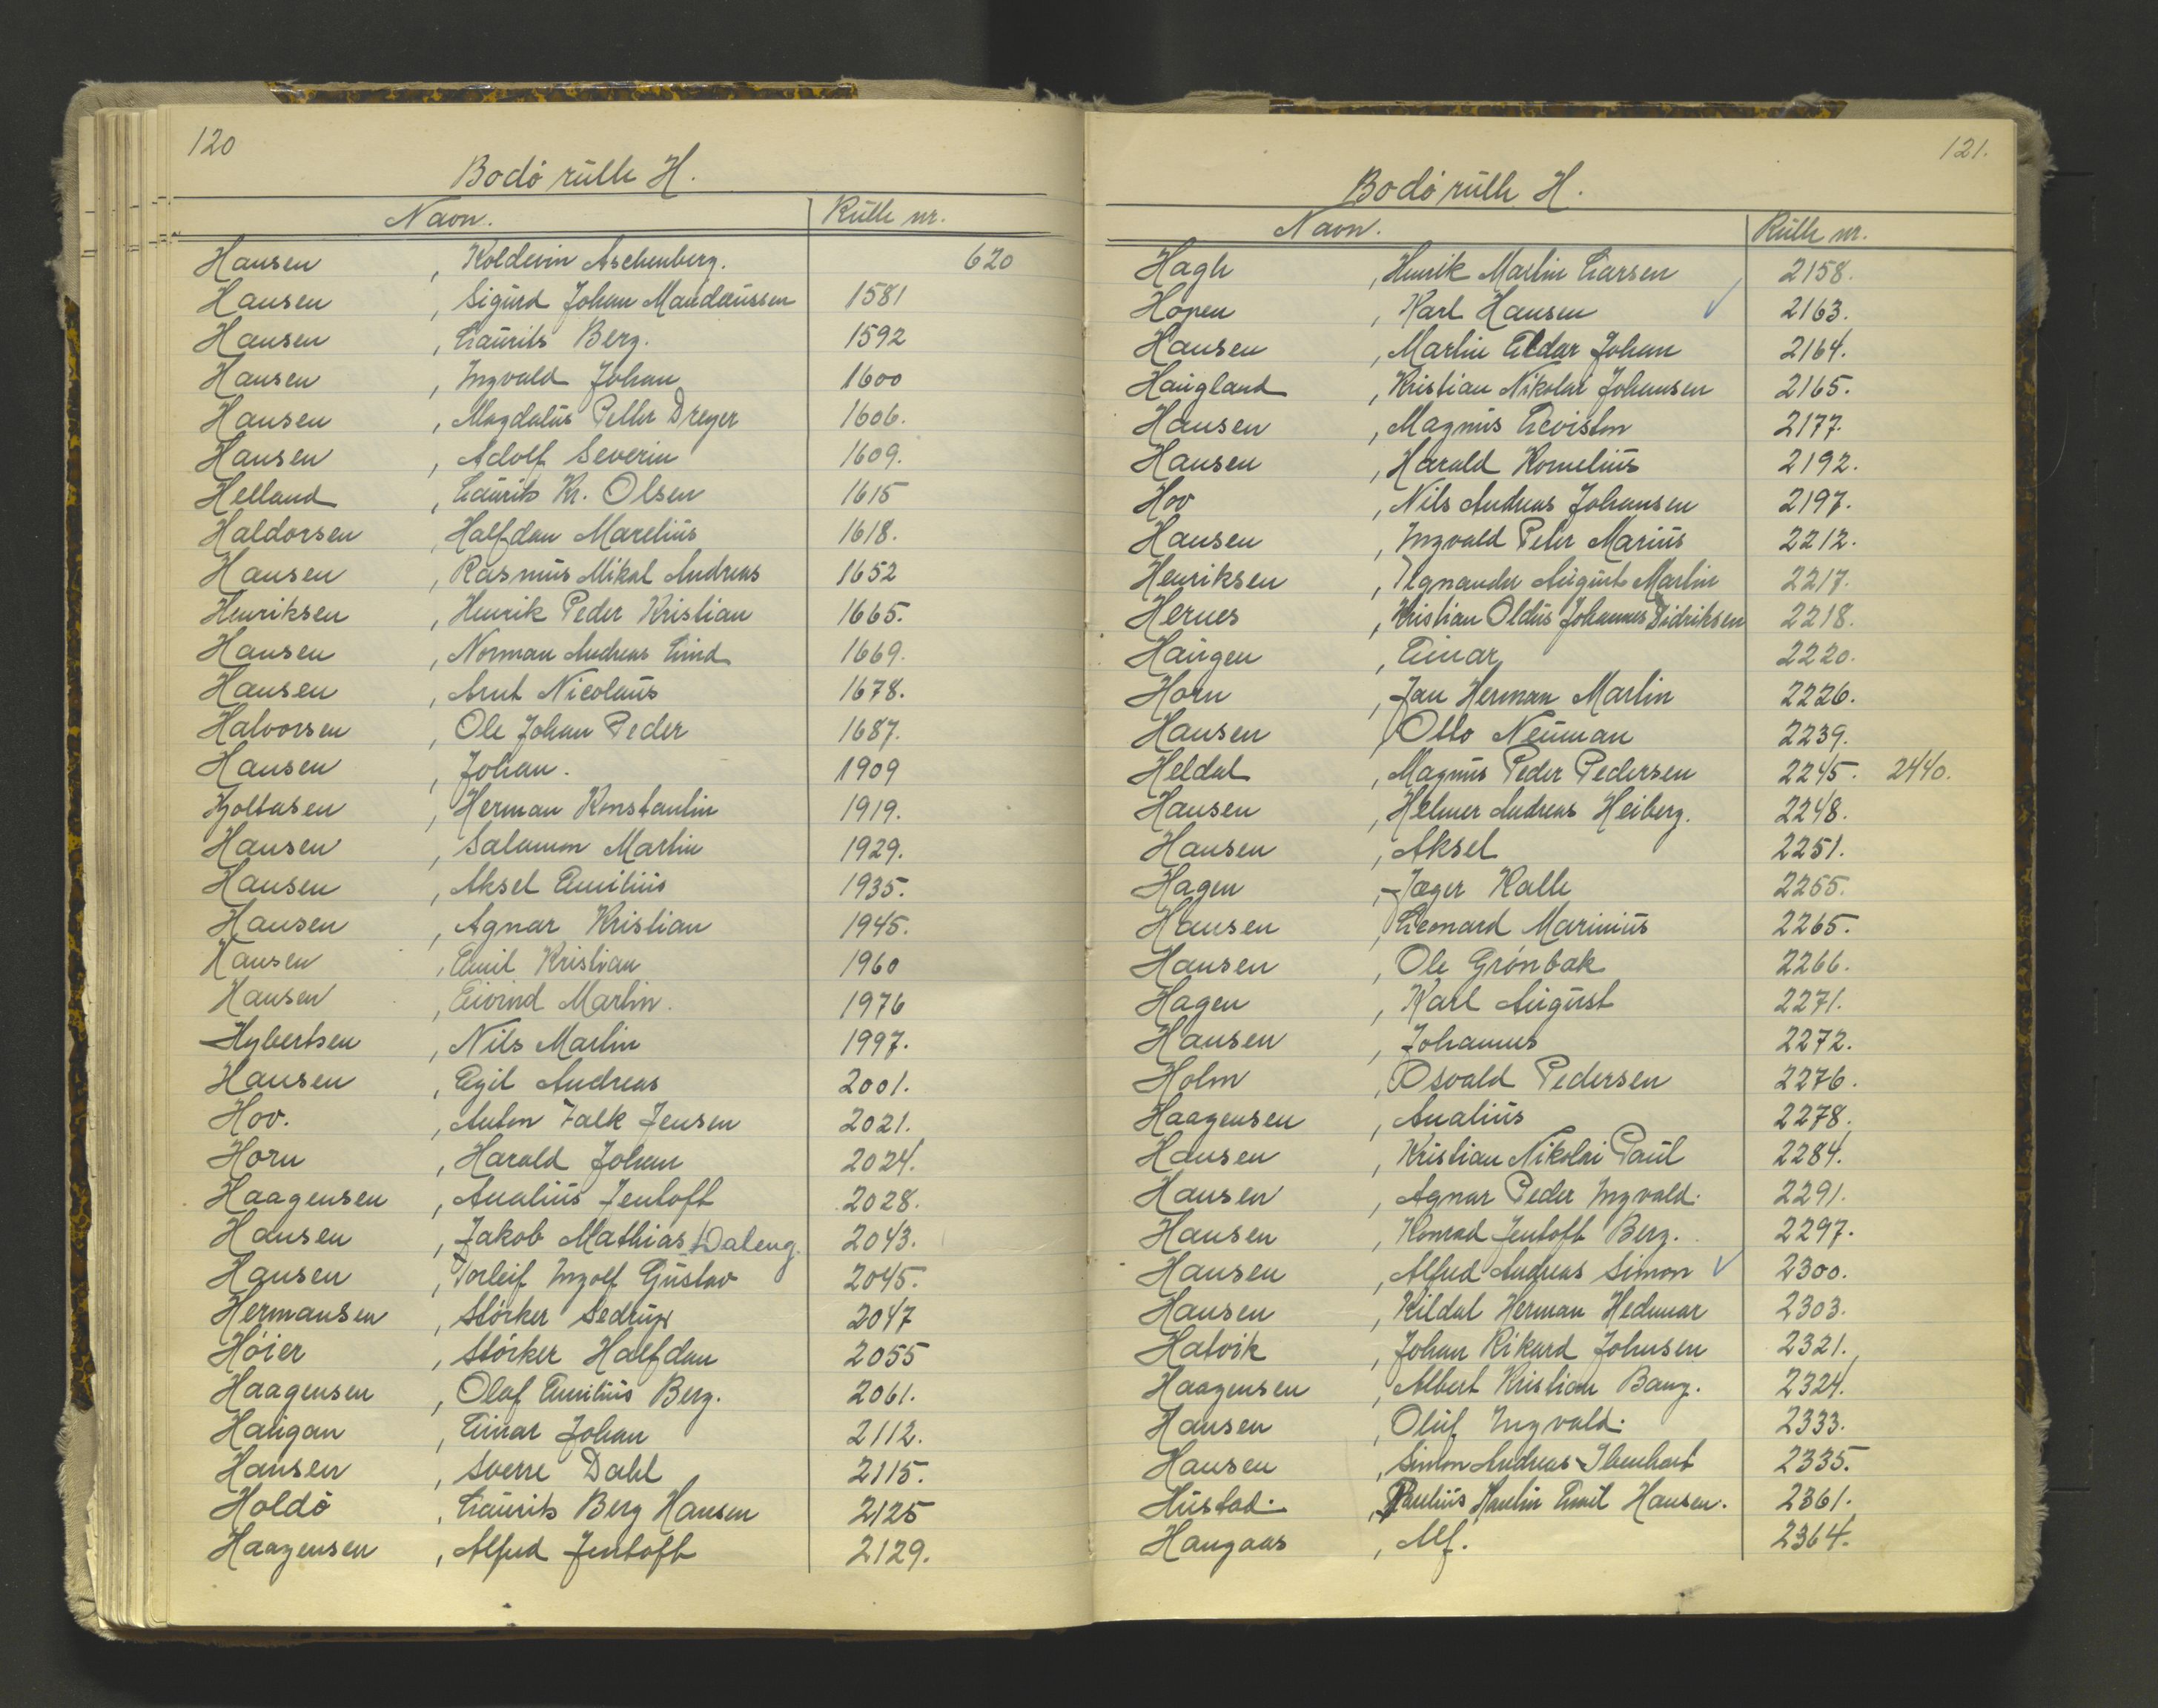 120
Bodø rulle H.
Navn. Rulle nr.
Hansen, Koldevin Aschenberg. 620
Hansen, Sigurd Johan Mandeussen 1581
Hansen, Laurits Berg. 1592
Hansen, Ingvald Johan 1600
Hansen, Magdalus Petter Dreyer 1606.
Hansen, Adolf Severin 1609.
Helland, Laurits Kr. Olsen 1615
Haldorsen, Halfdan Marelius 1618.
Hansen, Rasmus Mikal Andreas 1652
Henriksen, Henrik Peder Kristian 1665.
Hansen, Norman Andreas Lind 1669.
Hansen, Arnt Nicolaus 1678.
Halvorsen, Ole Johan Peder 1687.
Hansen, Johan. 1909
Holtasen, Herman Konstantin 1919.
Hansen, Salamon Martin 1929.
Hansen, Aksel Emilius 1935.
Hansen, Agnar Kristian 1945.
Hansen, Emil Kristian 1960
Hansen, Eivind Martin. 1976
Hybertsen, Nils Martin 1997.
Hansen, Egil Andreas 2001.
Hov., Anton Falk Jensen 2021.
Horn, Harald Johan 2024.
Haagensen, Analius Jentoft 2028.
Hansen, Jakob Mathias Daleng. 2043.
Hansen, Torleif Ingolf Gustav 2045.
Hermansen, Størker Sedrup 2047
Høier, Størker Halfdan 2055
Haagensen, Olaf Emilius Berg. 2061.
Haugan, Einar Johan 2112.
Hansen, Sverre Dahl 2115.
Holdø, Laurits Berg Hansen 2125
Haagensen, Alfred Jentoft 2129.
121.
Bodø rulle H.
Navn. Rulle nr.
Hagh, Henrik Martin Larsen 2158.
Hopen, Karl Hansen ✓ 2163.
Hansen, Martin Eldar Johan 2164.
Haugland, Kristian Nikolai Johansen 2165.
Hansen, Magnus Leviston 2177.
Hansen, Harald Kornelius 2192.
Hov, Nils Andreas Johansen 2197.
Hansen, Ingvald Peter Marius 2212.
Henriksen, Tegnander August Martin 2217.
Hernes, Kristian Oldus Johannes Didriksen 2218.
Haugen, Einar 2220.
Horn, Jan Herman Martin 2226.
Hansen, Otto Neuman 2239.
Heldal, Magnus Peder Pedersen 2245. 2440.
Hansen, Helmer Andreas Heiberg. 2248.
Hansen, Aksel 2251.
Hagen, Jæger Kalle 2255.
Hansen, Leonard Marinius 2265.
Hansen, Ole Grønbak 2266.
Hagen, Karl August 2271.
Hansen, Johannes 2272.
Holm, Osvald Pedersen 2276.
Haagensen, Analius 2278.
Hansen, Kristian Nikolai Paul 2284.
Hansen, Agnar Peder Ingvald. 2291.
Hansen, Konrad Jentoft Berg. 2297.
Hansen, Alfred Andreas Simon ✓ 2300.
Hansen, Kildal Herman Hedmar 2303.
Hatvik, Johan Rikard Johnsen 2321.
Haagensen, Albert Kristian Bang. 2324.
Hansen, Oluf Ingvald. 2333.
Hansen, Simon Andreas Ibenhart 2335.
Hustad., Paulius Haulin Emil Hansen. 2361.
Haugaas, Alf. 2364.